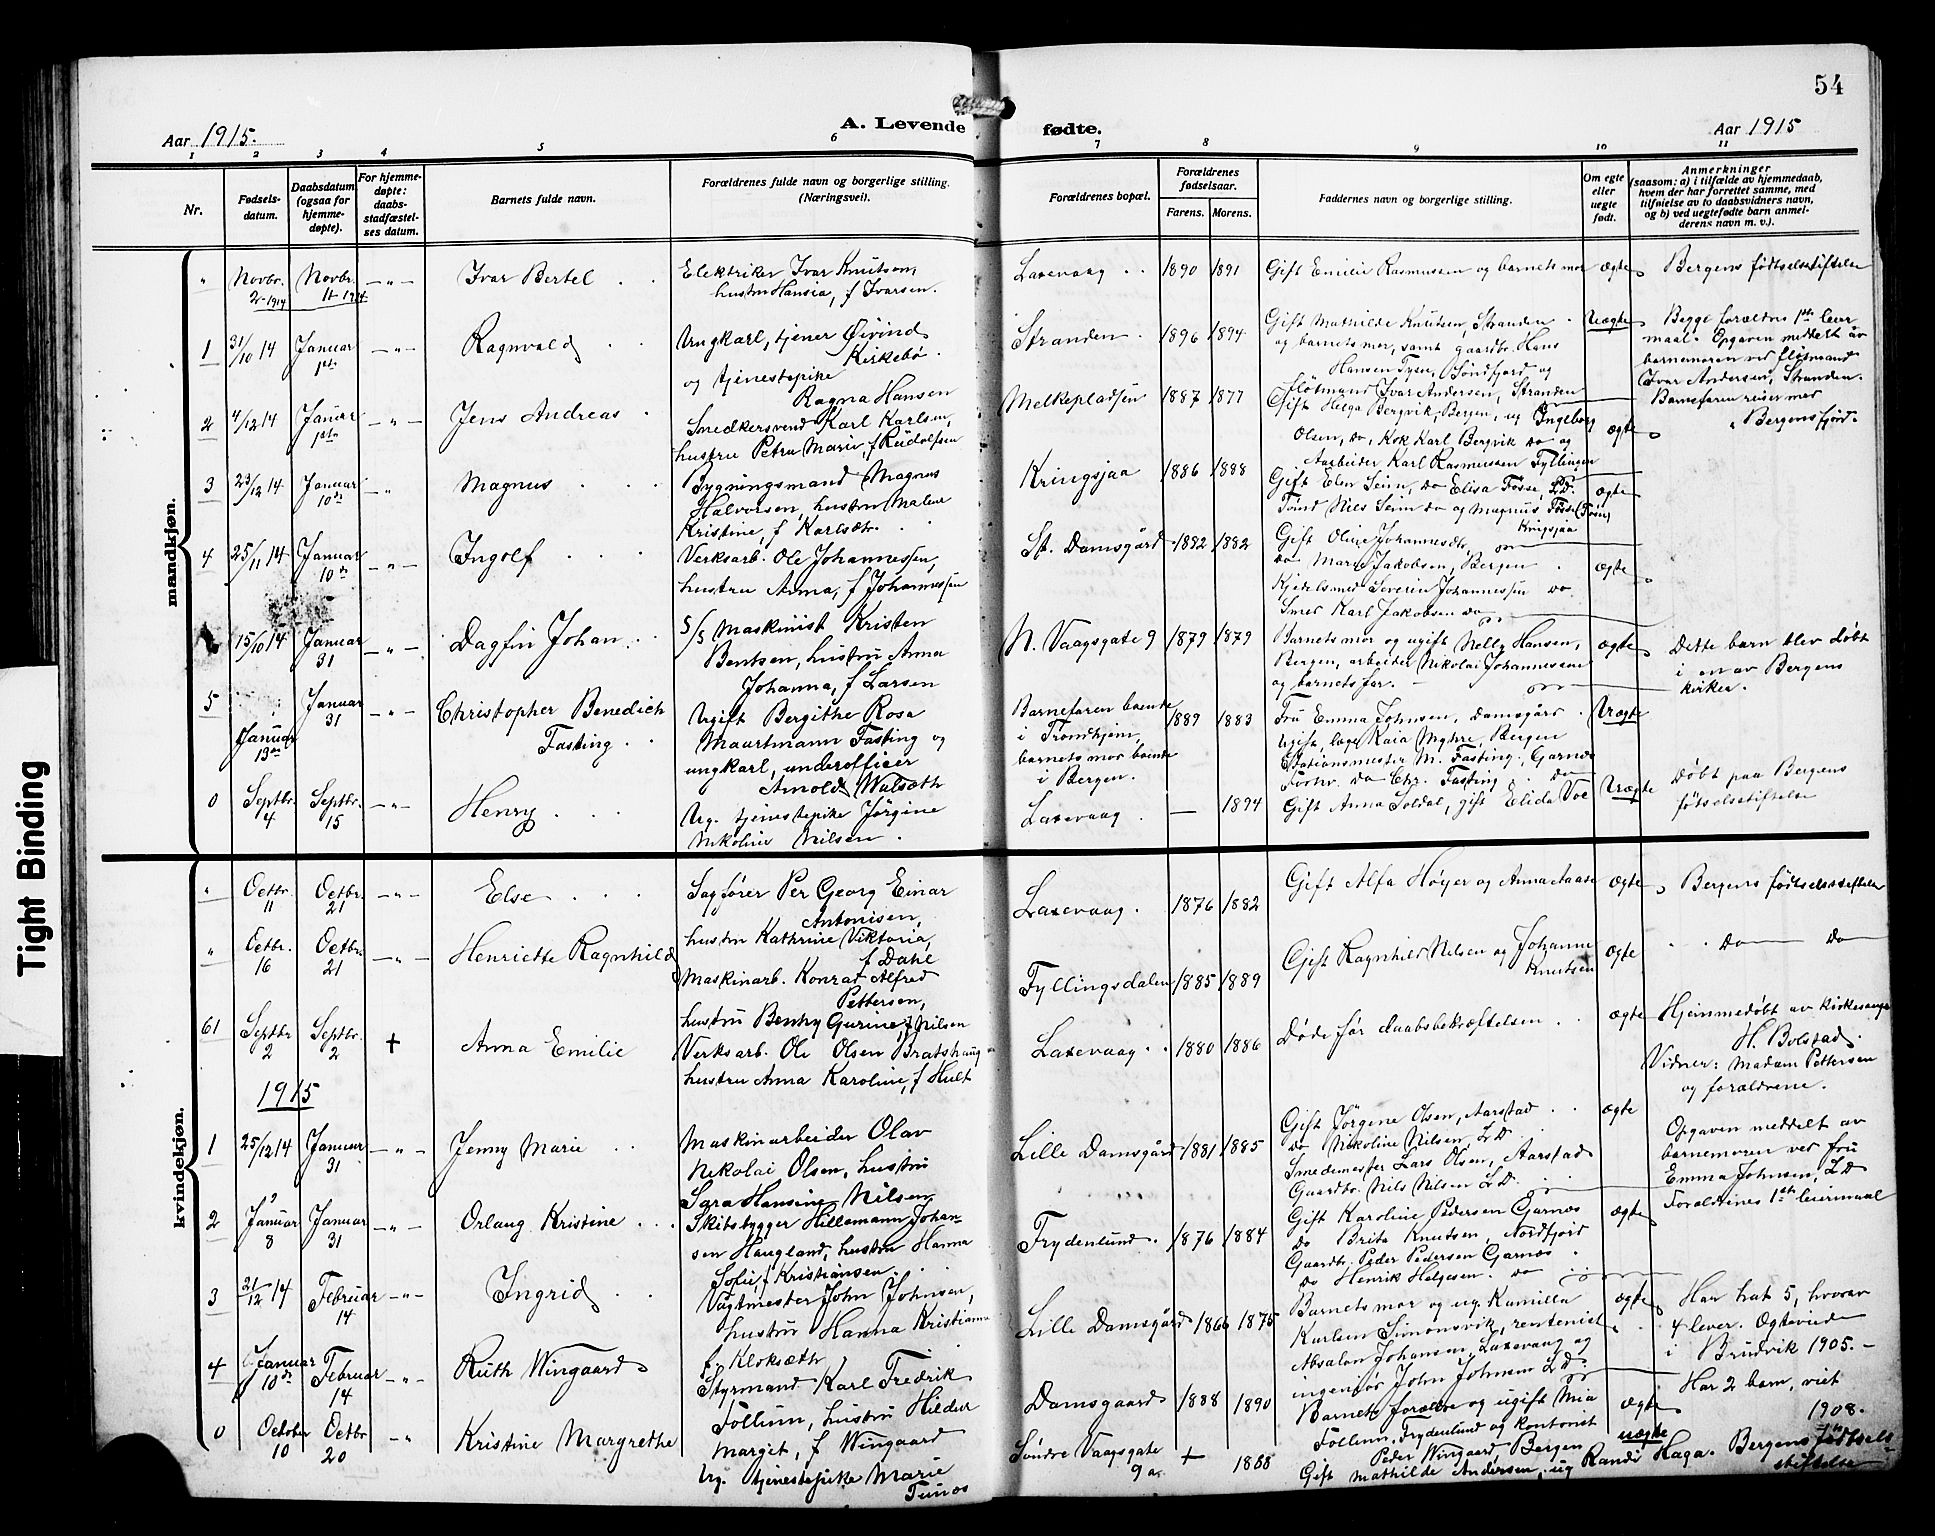 54
Aar 1915.
A. Levende
fødte.
Aar 1915
1 2 3 4 5 6 7 8 9 10 11
Nr.
Fødsels-
datum.
Daabsdatum
(ogsaa for
hjemme-
døpte).
For hjemme-
døpte:
daabs-
stadfæstel-
ses datum.
Barnets fulde navn.
Forældrenes fulde navn og borgerlige stilling.
(Næringsvei).
Forældrenes bopæl.
Forældrenes
fødselsaar.
Farens. Morens.
Faddernes navn og borgerlige stilling.
Om egte
eller
uegte
født.
Anmerkninger
(saasom: a) i tilfælde av hjemmedaab,
hvem der har forrettet samme, med
tilføielse av to daabsvidners navn,
og b) ved uegtefødte barn anmel-
derens navn m. v.).
mandkjøn.
" Novbr. 2-1914 Novbr. 11-1914 — " — Ivar Bertel
Elektriker Ivar Knutsen,
hustru Hansia, f Ivarsen.
Laxevaag 1890 1891
Gift Emilie Rasmussen og barnets mor ægte
Bergens fødselsstiftelse
1 31/10 14 Januar 1ste — " — Ragnvald
Ungkarl, tjener Øivind
Kirkebø.
og tjenestepike
Ragna Hansen
Stranden 1896 1894
Gift Mathilde Knutsen, Stranden
og barnets mor, samt gaardbr. Hans
Hansen Tysse, Söndfjord og
fløtmand Ivar Andersen, Stranden
Uægte
Begge foreldres 1ste leier
maal. Opgaven meddelt av
barnemoren ved fløtmand
Ivar Andersen, Stranden.
Barnefaren reiser med
"Bergensfjord."
2 4/12 14 Januar 1ste — " — Jens Andreas
Snedkersvend Karl Karlsen,
hustru Petra Marie, f Rudolfsen
Melkepladsen 1887 1877
Gift Helga Bergvik, Bergen, ug Ingeborg
Olsen, do, Kok Karl Bergvik do og
Aarbeider Karl Rasmussen Fyllingen
ægte
3 23/12 14 Januar 10de — " Magnus
Bygningsmand Magnus
Halvorsen, hustru Malene
Kristine, f Karlsøtr.
Kringsjaa 1886 1888
Gift Elen Seim, do Elisa Fosse, L.D.
Tønd Nils Seim do og Magnus Fosse (Fosen)
Kringsjaa
ægte
4 25/11 14 Januar 10de — " — Ingolf
Verksarb. Ole Johannessen,
hustru Anna, f Johannessen
St. Damsgård 1882 1882
Gift Oline Johannesdtr,
do Marie Jakobsen, Bergen
Kjedelsmed Severin Johannessen do
Smed Karl Jakobsen do
ægte
15/10 14 Januar 31 — " — Dagfin Johan
S/S Maskinist Kristen
Bentsen, hustru Anna
Johanna, f Larsen
N. Vaagsgate 9 1879 1879
Barnets mor og ugift Nelly Hansen,
Bergen, arbeider Nikolai Johannessen
og barnets far.
ægte
Dette barn blev døbt
i en av Bergens
kirker.
5 Januar 13de Januar 31 — " — Christopher Benedich
Fasting
Ugift Bergithe Rosa
Maartmann Fasting og
ungkarl, underofficer
Arnold Walsøth
Barnefaren boende
i Trondhjem,
barnets mor boende
i Bergen.
1889 1883
Fru Emma Johnsen, Damsgård
Ugift, læge Kaia Myhre, Bergen
Stationsmester M. Fasting, Garnes
Forhv. do Chr. Fasting do
Uægte
0 Septbr. 4 Septbr. 15 — " — Henry
Ug. tjenestepike Jørgine
Nikoline Nilsen
Laxevaag — 1894
Gift Anna Soldal, gift Elida Voe
Uægte
Døbt paa Bergens
fødselsstiftelse
kvindekjøn.
" Octbr. 11 Octbr. 21 — " — Else
Sagfører Per Georg Einar
Antonisen,
hustru Kathrine Viktoria,
f Dahl
Laxevaag 1876 1882
Gift Alfa Høyer og Anna Aase ægte
Bergens fødselsstiftelse
" Octbr. 16 Octbr. 21 — " — Henriette Ragnhild
Maskinarb. Konrad Alfred
Pettersen,
hustru Benthy Gurine, f Nilsen
Fyllingsdalen 1885 1889
Gift Ragnhild Nilsen og Johanne
Knutsen
ægte
do — do
61 Septbr 2 Septbr. 2 † Anna Emilie
Verksarb. Ole Olsen Bratshaug
hustru Anna Karoline, f Hult
Laxevaag 1880 1886
Døde før daabsbekræftelsen ægte
Hjemmedøbt av kirkesanger
H. Bolstad.
Vidner: Madam Pettersen
og forældrene.
1915
1 25/12 14 Januar 31 — " — Jenny Marie
Maskinarbeider Olav
Nikolai Olsen, hustru
Sara Hansine Nilsen
Lille Damsgård 1881 1885
Gift Jørgene Olsen, Aarstad
do Nikoline Nilsen, L D
Smedemester Lars Olsen, Aarstad
Gaardbr. Nils Nilsen L D
ægte
Opgaven meddelt av
barnemoren ved fru
Emma Johnsen, L D
Foreldrenes 1ste leiermaal
2 Januar 8 Januar 31 — " — Orlaug Kristine
Skibsbygger Hillemann Johan-
sen Haugland, hustru Hanna
Sofie, f Kristiansen.
Frydenlund 1876 1884
Gift Karoline Pedersen Garnes
do Brita Knudsen, Nordfjord
Gaardbr. Peder Pedersen Garnæs
do Henrik Helgesen do
ægte
3 21/12 14 Februar 14 — " — Ingrid
Vagtmester John Johnsen,
hustru Hanna Kristianna
f. Kloksæth
Lille Damsgård 1866 1875
Barnets mor og ug. Kamilla
Karlsen Simonsvik, rentenist
Absalon Johansen, Laxevaag og
ingeniør John Johnsen L D.
ægte
Har hat 5, hvorav
4 lever. Ogteviede
i Bruvik 1905.
4 Januar 10de Februar 14 — " — Ruth Wingaard
Styrmand Karl Fredrik
Follum, hustru Hildur
Marget, f Wingaard
Damsgaard 1888 1890
Barnets forældre og ugift Mia
Follum, Frydenlund og kontorist
Peder Wingaard Bergen
ægte
Har 2 barn, viet
1908.
0 October 10 Octbr 20 — " Kristine Margrethe
Ug. tjenestepike Marie
Tunes
Søndre Vaagsgate
9 a. + 1888
Gift Mathilde Andersen, ug Randi Haga.
uægte
Bergens fødsels-
stiftelse
Tight Binding